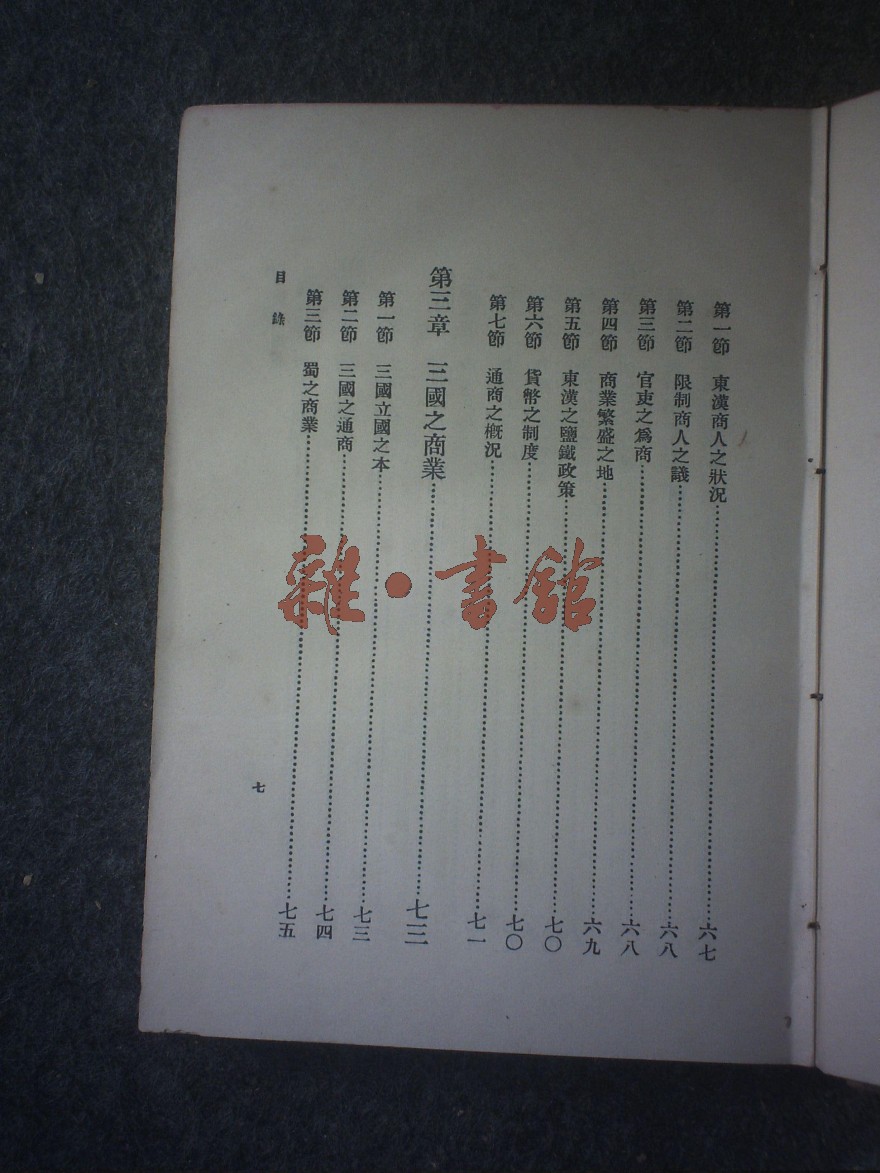 第一節　東漢商人之狀況……六七
第二節　限制商人之議……六八
第三節　官吏之爲商……六八
第四節　商業繁盛之地……六九
第五節　東漢之鹽鐵政策……七〇
第六節　貨幣之制度……七〇
第七節　通商之槪況……七一
第三章　三國之商業……七三
第一節　三國立國之本……七三
第二節　三國之通商……七四
第三節　蜀之商業……七五
目錄
七
雜·書館